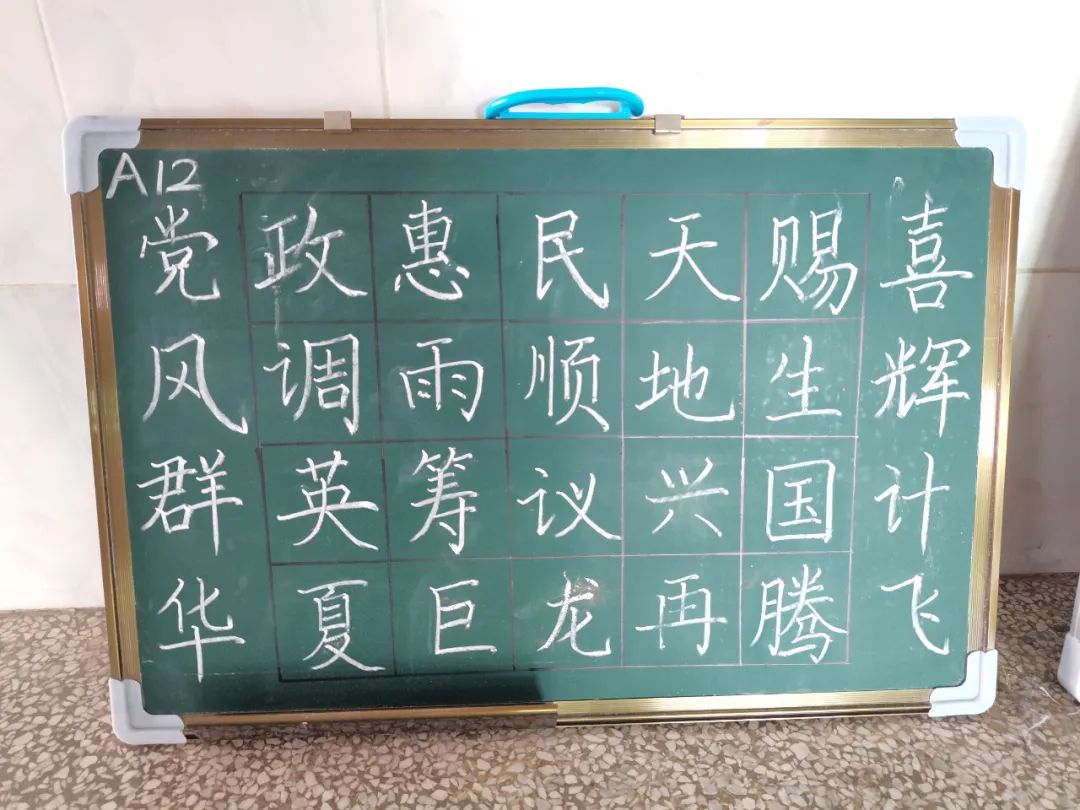 A12
党政惠民天赐喜
风调雨顺地生辉
群英筹议兴国计
华夏巨龙再腾飞